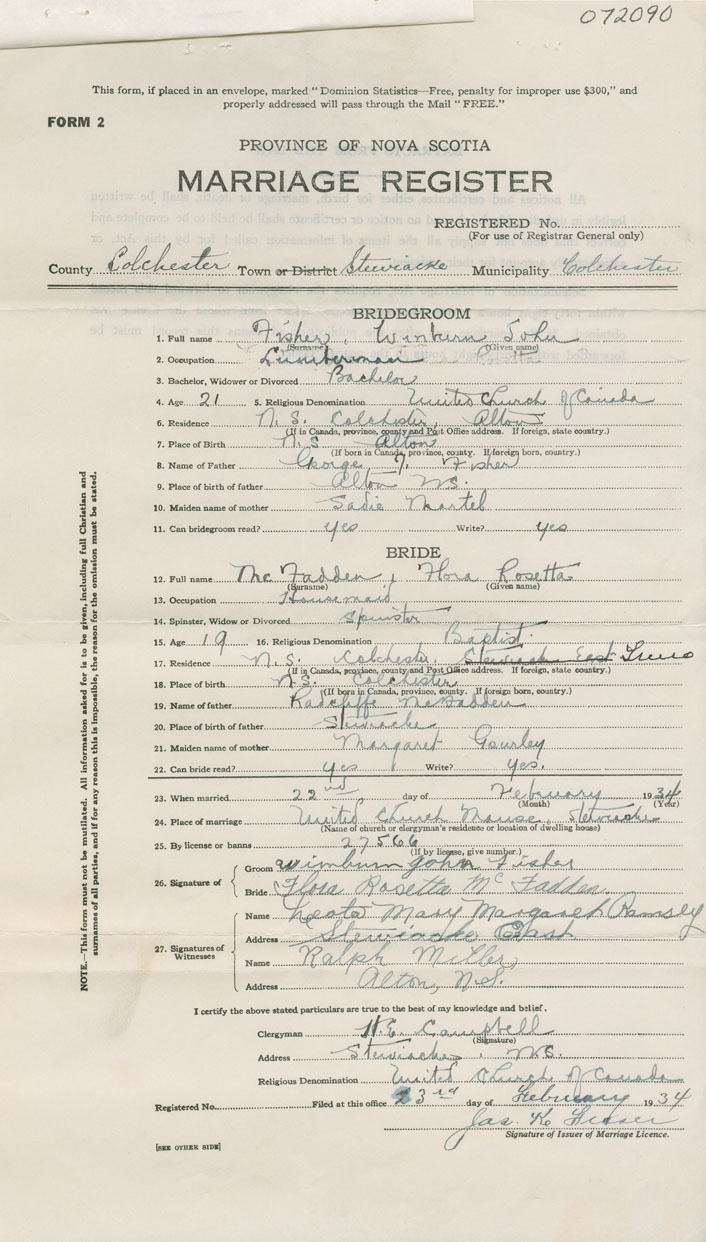 072090
This form, if placed in an envelope, marked "Dominion Statistics—Free, penalty for improper use $300," and
properly addressed will pass through the Mail "FREE."
FORM 2
PROVINCE OF NOVA SCOTIA
MARRIAGE REGISTER
REGISTERED No.
(For use of Registrar General only)
County Colchester Town or District Stewiacke Municipality Colchester
BRIDEGROOM
1. Full name Fisher, Winburn John
(Surname) (Given name)
2. Occupation Lumberman
3. Bachelor, Widower or Divorced Bachelor
4. Age 21 5. Religious Denomination United Church of Canada
6. Residence N. S. Colchester, Alton
(If in Canada, province, county and Post Office address. If foreign, state country.)
7. Place of Birth N. S. Alton
(If born in Canada, province, county. If foreign born, country.)
8. Name of Father George Fisher
9. Place of birth of father Alton N.S.
10. Maiden name of mother Sadie Martel
11. Can bridegroom read? yes Write? yes
BRIDE
12. Full name McFadden, Flora Rosetta
(Surname) (Given name)
13. Occupation Housemaid
14. Spinster, Widow or Divorced Spinster
15. Age 19 16. Religious Denomination Baptist
17. Residence N. S. Colchester, Stewiacke East Truro
(If in Canada, province, county and Post Office address. If foreign, state country.)
18. Place of birth N.S. Colchester
(If born in Canada, province, county. If foreign born, country.)
19. Name of father Radcliffe McFadden
20. Place of birth of father Stewiacke
21. Maiden name of mother Margaret Gourley
22. Can bride read? yes Write? yes.
23. When married 22nd day of February 1934
(Month) (Year)
24. Place of marriage United Church Manse, Stewiacke
(Name of church or clergyman's residence or location of dwelling house)
25. By license or banns 27566
(If by license, give number.)
26. Signature of
Groom Wimburn John Fisher
Bride Flora Rosetta McFadden.
27. Signatures of Witnesses
Name Neata Mary Margaret Ramsey
Address Stewiacke East
Name Ralph Miller,
Address Alton, N.S.
I certify the above stated particulars are true to the best of my knowledge and belief.
Clergyman H.E. Campbell
(Signature)
Address Stewiacke, N.S.
Religious Denomination United Church of Canada
Registered No. Filed at this office 23rd day of February 1934
Jas. K.
Signature of Issuer of Marriage Licence.
[SEE OTHER SIDE]
NOTE.—This form must not be mutilated. All information asked for is to be given, including full Christian and
surnames of all parties, and if for any reason this is impossible, the reason for the omission must be stated.